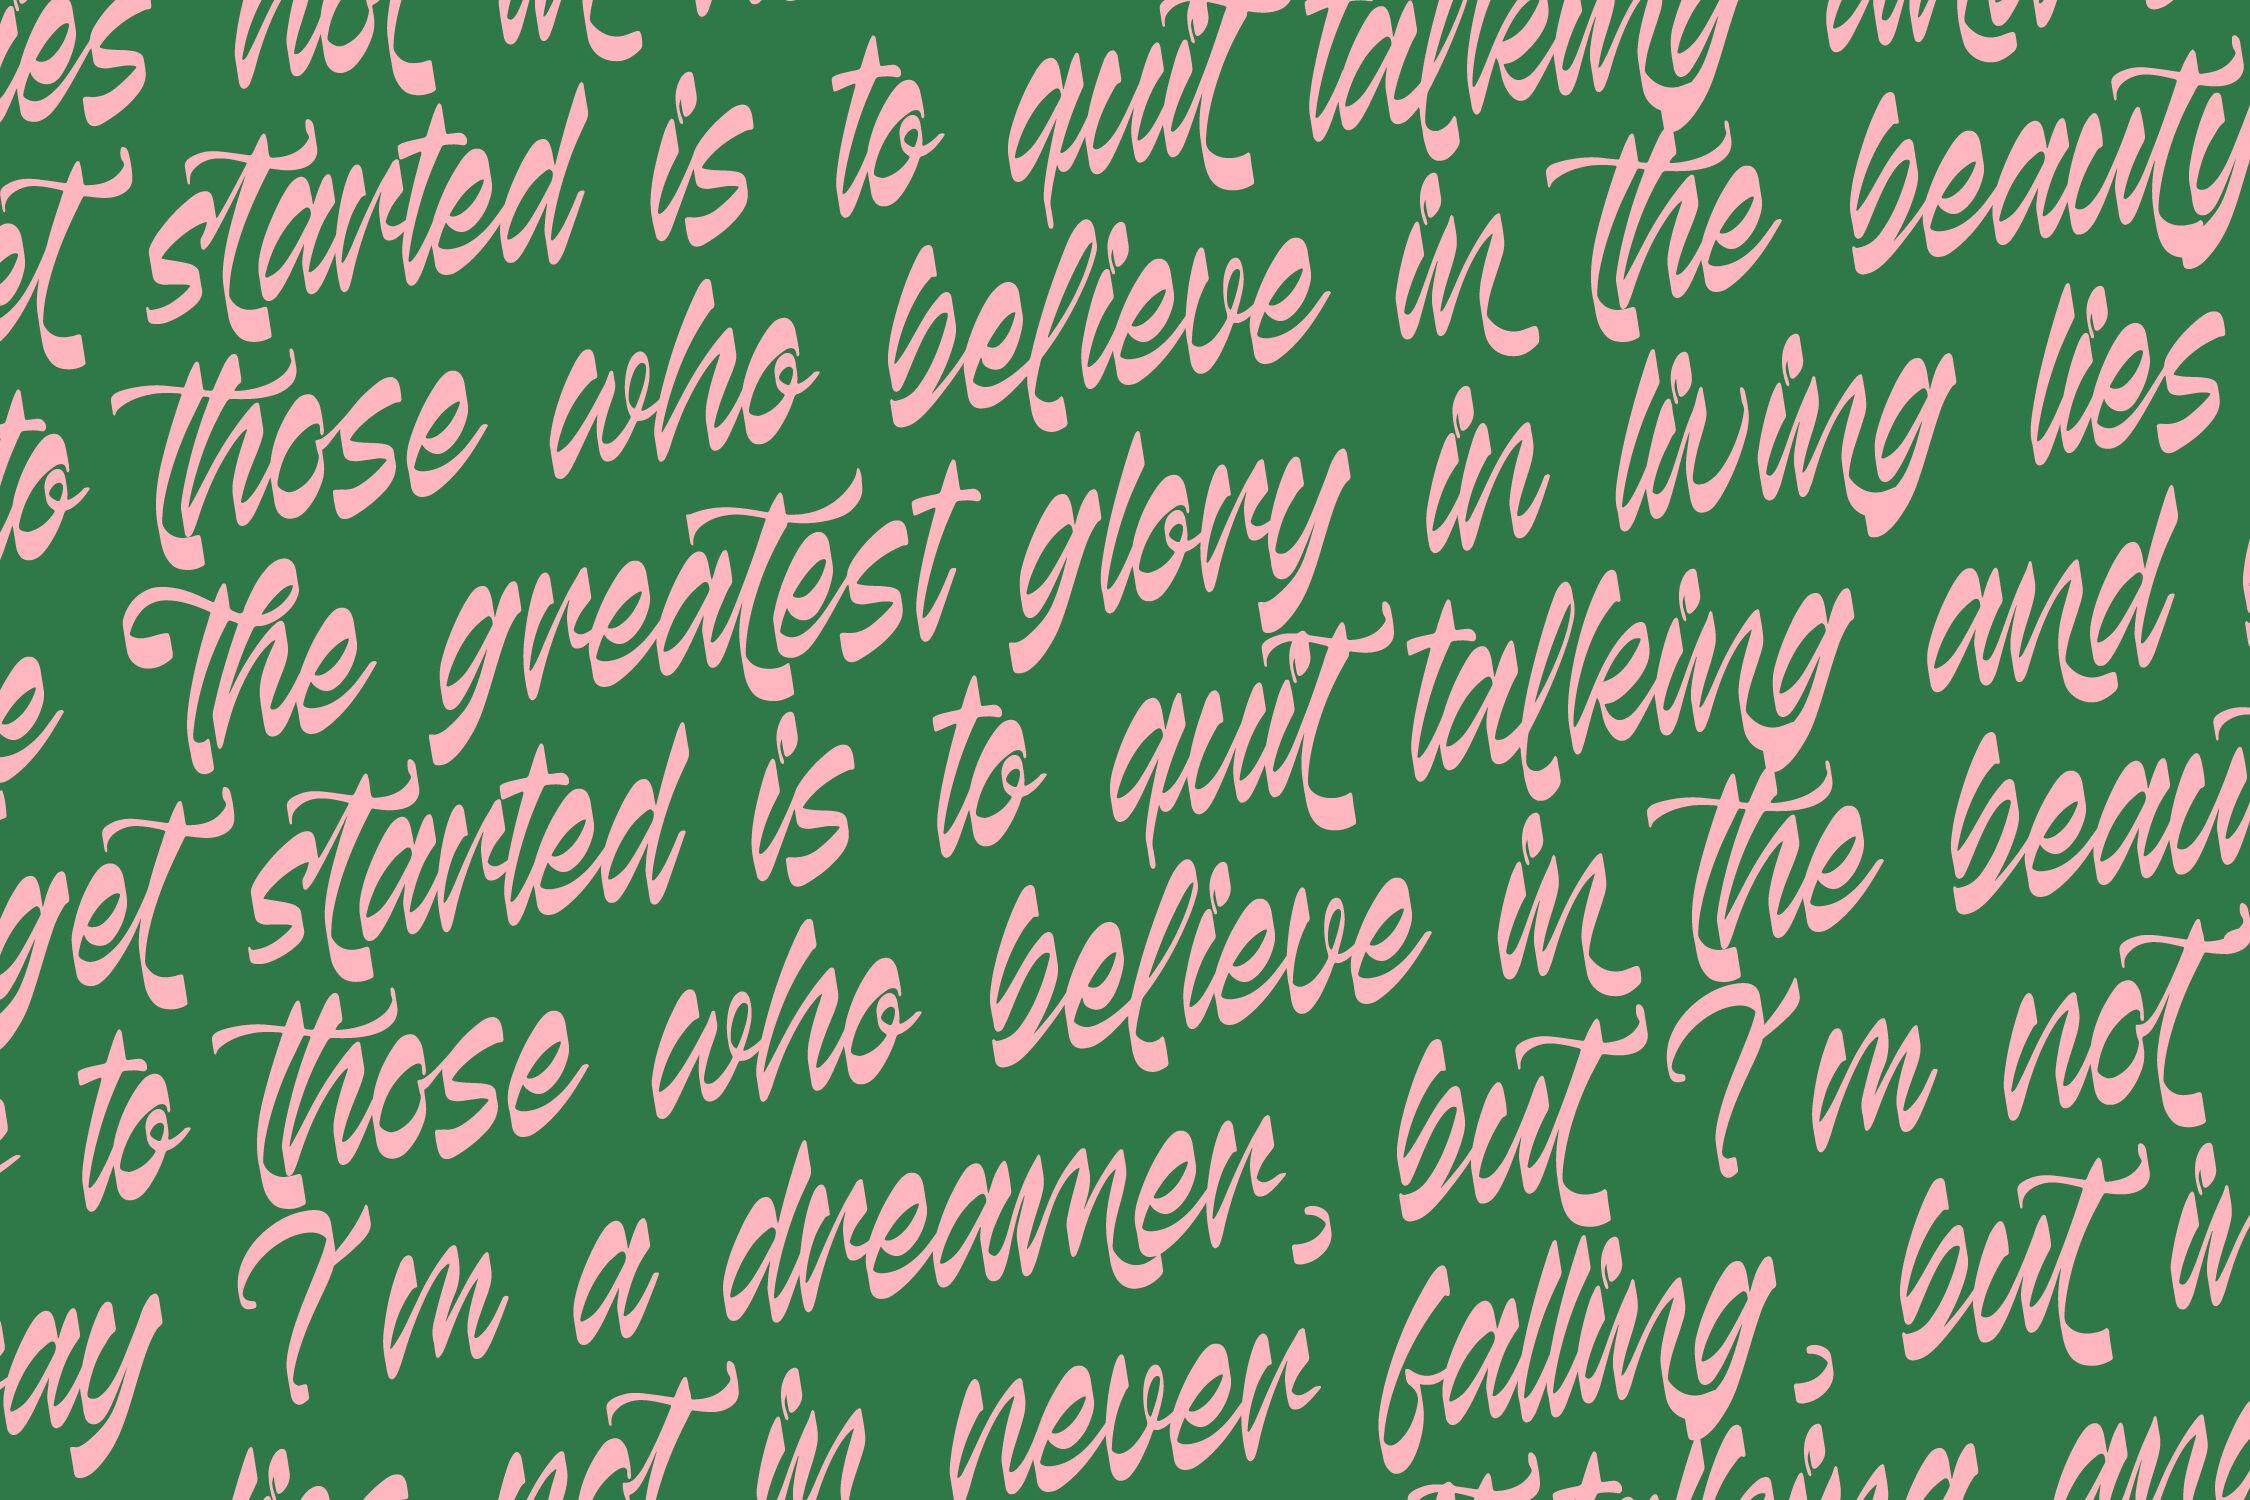 not in
started is to quit talking
to those who believe in the beauty
The greatest glory in living lies
get started is to quit talking and
to those who believe in the
I'm a dreamer, but I'm not
not in never falling, but in